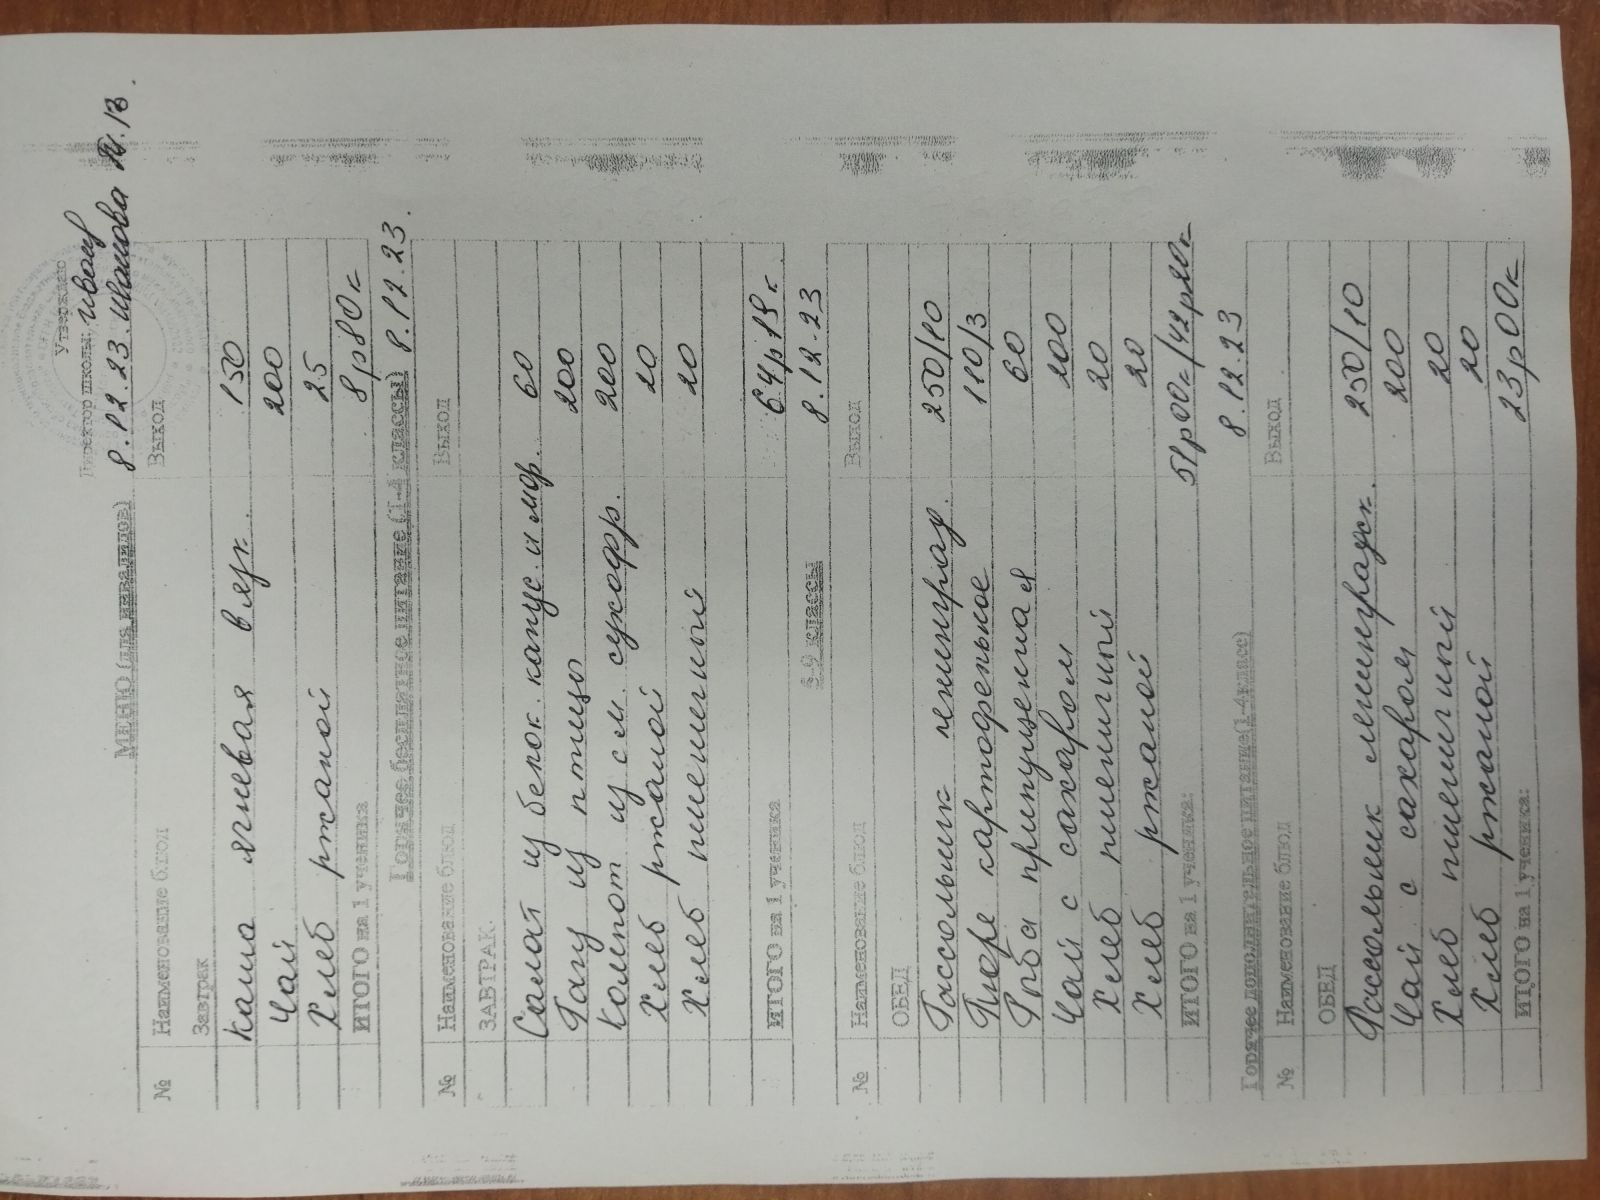 Утверждаю
Директор школы:
МЕНЮ (для инвалидов) 8.12.23. Иванова
№ Наименование блюд Выход
Завтрак
Каша ячневая вязк. 150
Чай 200
Хлеб ржаной 25
ИТОГО на 1 ученика 8р80к
Горячее бесплатное питание (1-4 классы) 8.12.23.
№ Наименование блюд Выход
ЗАВТРАК
Салат из белок. капус. и мор. 60
Рагу из птицы 200
Компот из см. сухофр. 200
Хлеб ржаной 20
Хлеб пшеничный 20
ИТОГО на 1 ученика 64р15к
5-9 классы 8.12.23
№ Наименование блюд Выход
ОБЕД
Рассольник ленинград. 250/10
Пюре картофельное 110/3
Рыба припущенная 60
Чай с сахаром 200
Хлеб пшеничный 20
Хлеб ржаной 20
ИТОГО на 1 ученика: 51р00к/42р20к
Горячее дополнительное питание(1-4класс) 8.12.23
№ Наименование блюд Выход
ОБЕД
Рассольник ленинградск. 250/10
Чай с сахаром 200
Хлеб пшеничный 20
Хлеб ржаной 20
ИТОГО на 1 ученика: 23р00к